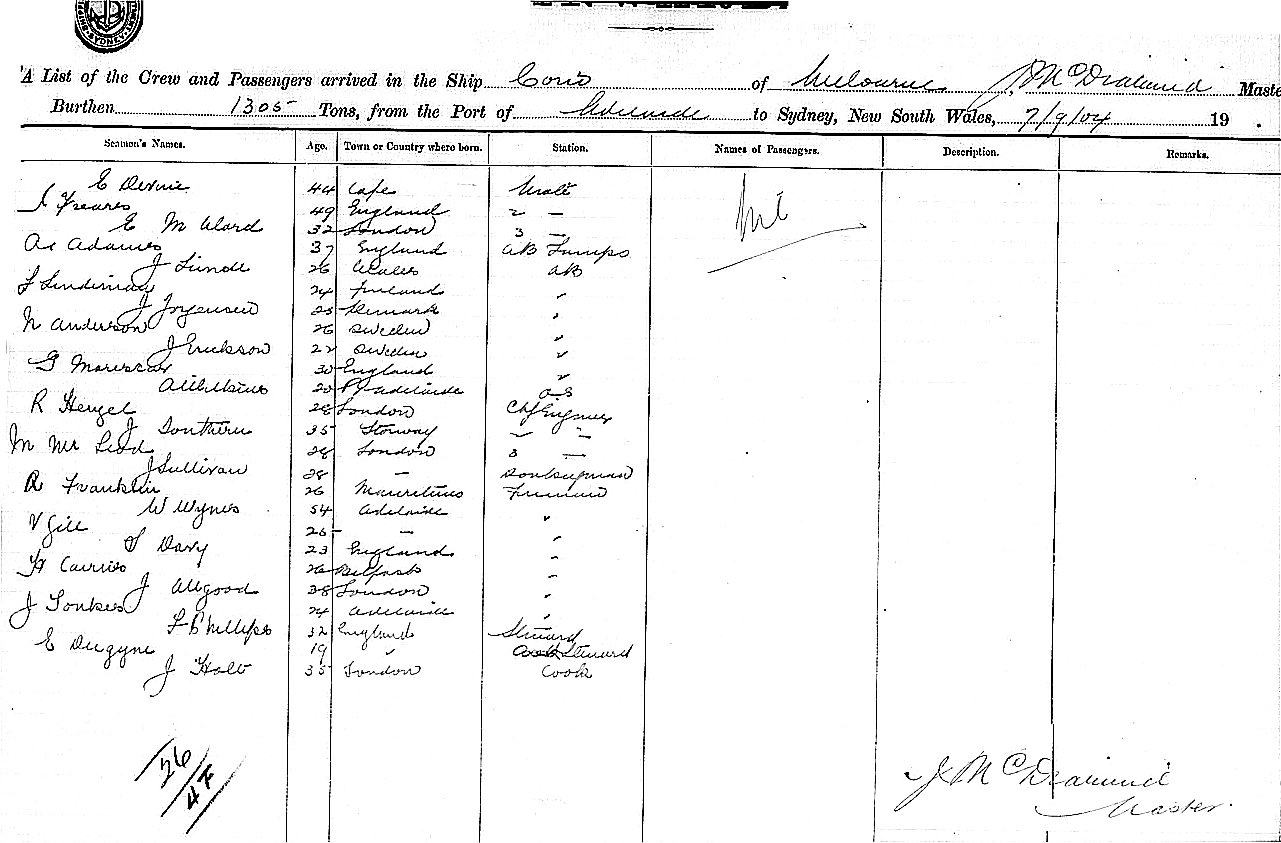 SYDNEY
A List of the Crew and Passengers arrived in the Ship of Melbourne J McDiarmid Maste
Burthen 1305 Tons, from the Port of Adelaide to Sydney, New South Wales, 7/9/04 19 .
Seamen's Names. Age. Town or Country where born. Station. Names of Passengers. Description. Remarks.
E 44 Cape Mate Nil
49 England 2 —
E M Ward 32 London 3 —
Adams 37 England AB Lamps
J 26 Wales AB
24 Finland "
J Jorgensen 25 Denmark "
N Anderson 26 Sweden "
J Erickson 22 Sweden "
G 30 England "
A Wilkins 20 Pt Adelaide OS
R Hengel 28 London Chf Engineer
J Southern 35 2 —
M 28 London 3 —
J Sullivan 28 — Donkeyman
R Franklin 26 Mauritius Fireman
W Wynes 54 Adelaide "
V Gill 26 — "
Davy 23 England "
26 Belfast "
J Allgood 38 London "
J 24 Adelaide "
F Phillips 32 England Steward
E 19 " Steward
J Holt 35 London Cook
26
47
J McDiarmid
Master.